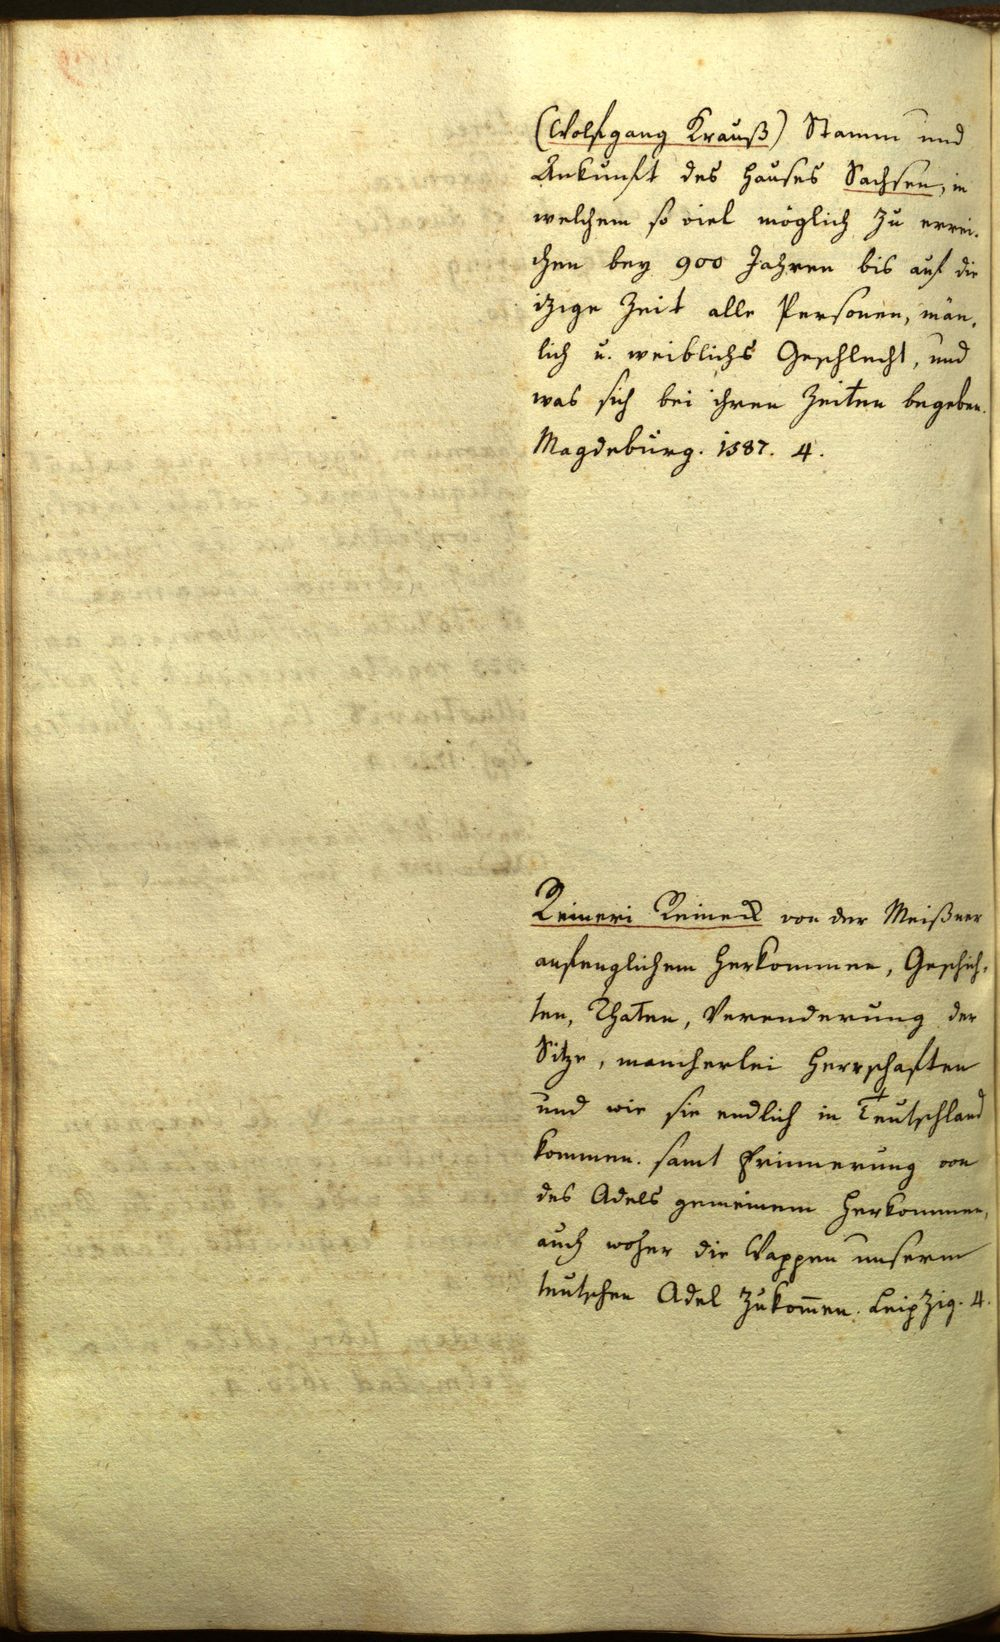 (Wolfgang Krauß) Stamm und
Ankunft des Hauses Sachsen, in
welchem so viel möglich zu errei-
chen bey 900 Jahren bis auf die
itzige Zeit alle Personen, män,
lich u. weiblichs Geschlecht, und
was sich bei ihren Zeiten begeben.
Magdeburg. 1587. 4.
Reineri Reineck von der Meißner
anfenglichem Herkommen, Geschich-
ten, Thaten, Verenderung der
Sitze, mancherlei Herrschaften
und wie sie endlich in Teutschland
kommen. samt Erinnerung von
des Adels gemeinem Herkommen,
auch woher die Wappen unserm
teutschen Adel zukom̄en. Leipzig. 4.